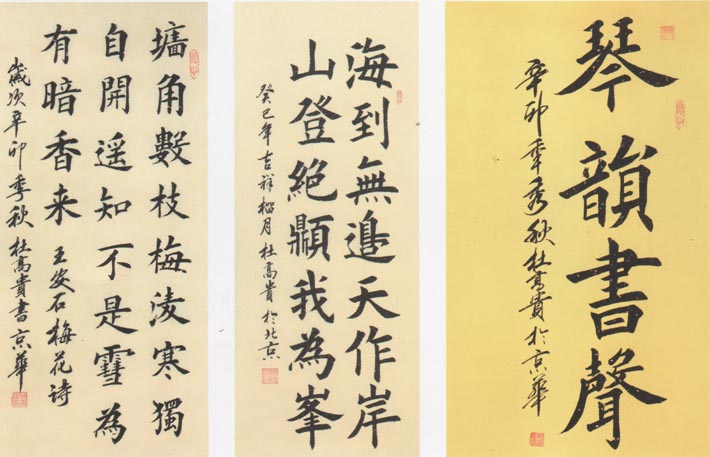 墻角數枝梅淩寒獨
自開遥知不是雪為
有暗香来
王安石梅花诗
歲次辛卯季秋杜高貴書京華
海到無邊天作岸
山登絶顛我為峯
癸巳年吉祥榴月杜高貴於北京
琴韻書聲
辛卯年秀秋杜高貴於京華